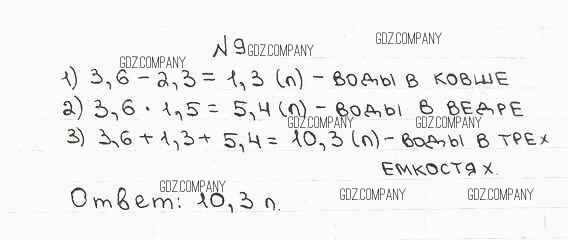 № 9 GDZ.COMPANY GDZ.COMPANY
GDZ.COMPANY
1) 3,6 - 2,3 = 1,3 (л) - воды в ковше
2) 3,6 · 1,5 = 5,4 (л) - воды в ведре
GDZ.COMPANY GDZ.COMPANY
3) 3,6 + 1,3 + 5,4 = 10,3 (л) - воды в трех
емкостях.
GDZ.COMPANY
Ответ: 10,3 л. GDZ.COMPANY GDZ.COMPANY